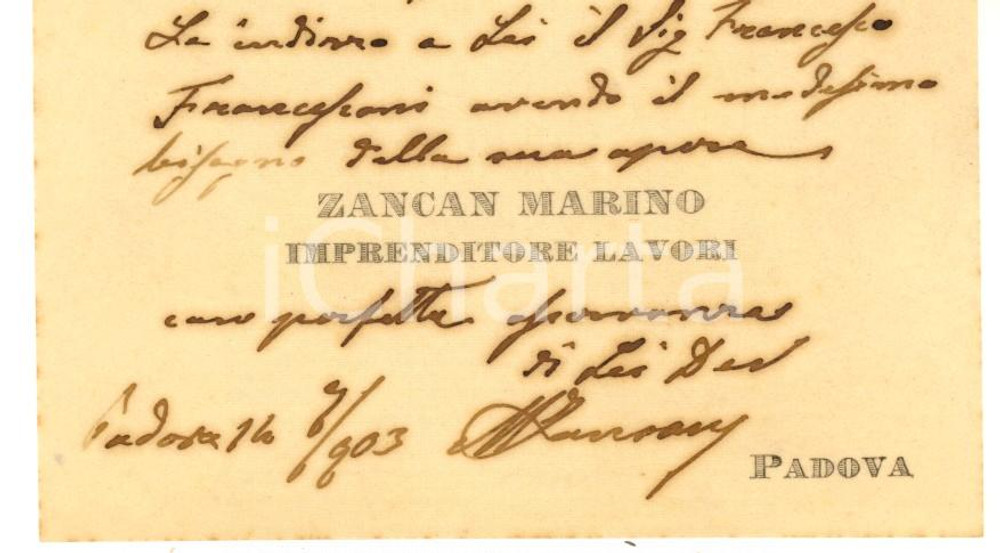 Le indirizzo a Lei il Sig Francesco
Francesconi avendo il medesimo
bisogno della sua opera
ZANCAN MARINO
IMPRENDITORE LAVORI
iCharta
con perfetta osservanza
di Lei Dev
Padova 14 7/903 MZancan
PADOVA